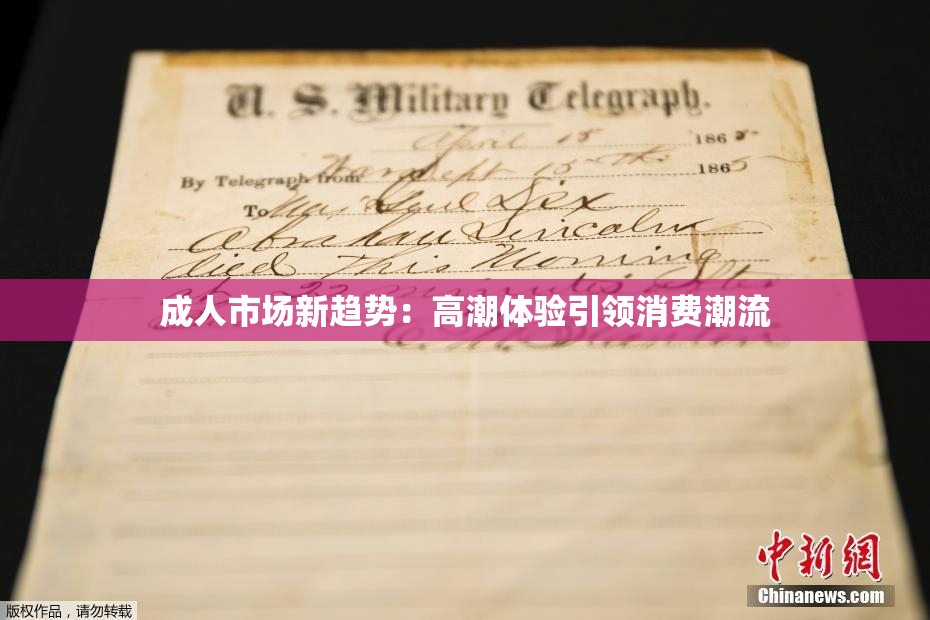 U. S. Military Telegraph.
April 15 1865
By Telegraph from War Dept 15th 1865
To Maj Genl Dix
Abraham Lincoln
died This Morning
at 22 minutes after
成人市场新趋势：高潮体验引领消费潮流
E. M. Stanton
中新网
Chinanews.com
版权作品，请勿转载